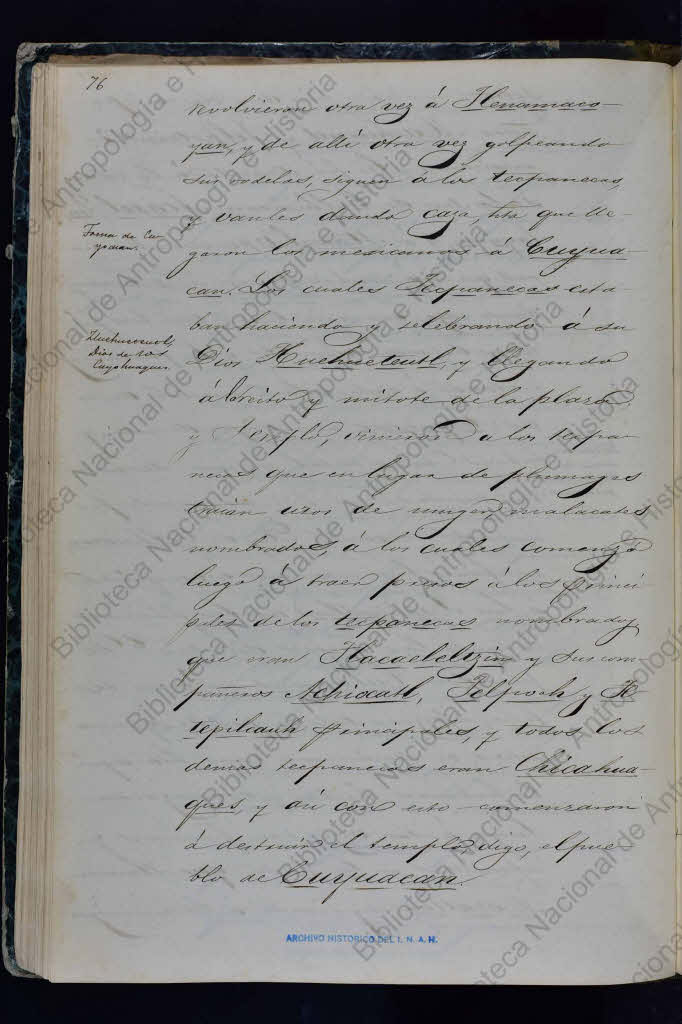 76
revolvieron otra vez á Tlenamaco-
yan, y de allí otra vez golpeando
sus rodelas, siguen á los tecpanecas,
y vanles dando caza, hta que lle-
garon los mexicanos á Cuyua-
can. Los cuales Tecpanecas esta
ban haciendo y selebrando á su
Dios Huehueteutl, y llegando
áreito y mitote de la plaza
y Templo, vinieron a los tecpa-
necas que en lugar de plumages
traian uzos de muger malacates
nombrados, á los cuales comenzó
luego á traer presos á los princi
pales de los tecpanecas nombrados
que eran Tlacaeleltzin y sus com-
pañeros Achiacatl, Pelpoch y Te-
tepilcauh principales, y todos los
demas tecpanecas eran Chicahua-
ques, y así con esto comenzaron
á destruir el templo, digo, el pue
blo de Cuyuacan.
Toma de Cu-
yuacan.
Dios de los
ARCHIVO HISTORICO DEL I. N. A. H.
Biblioteca Nacional de Antropología e Historia